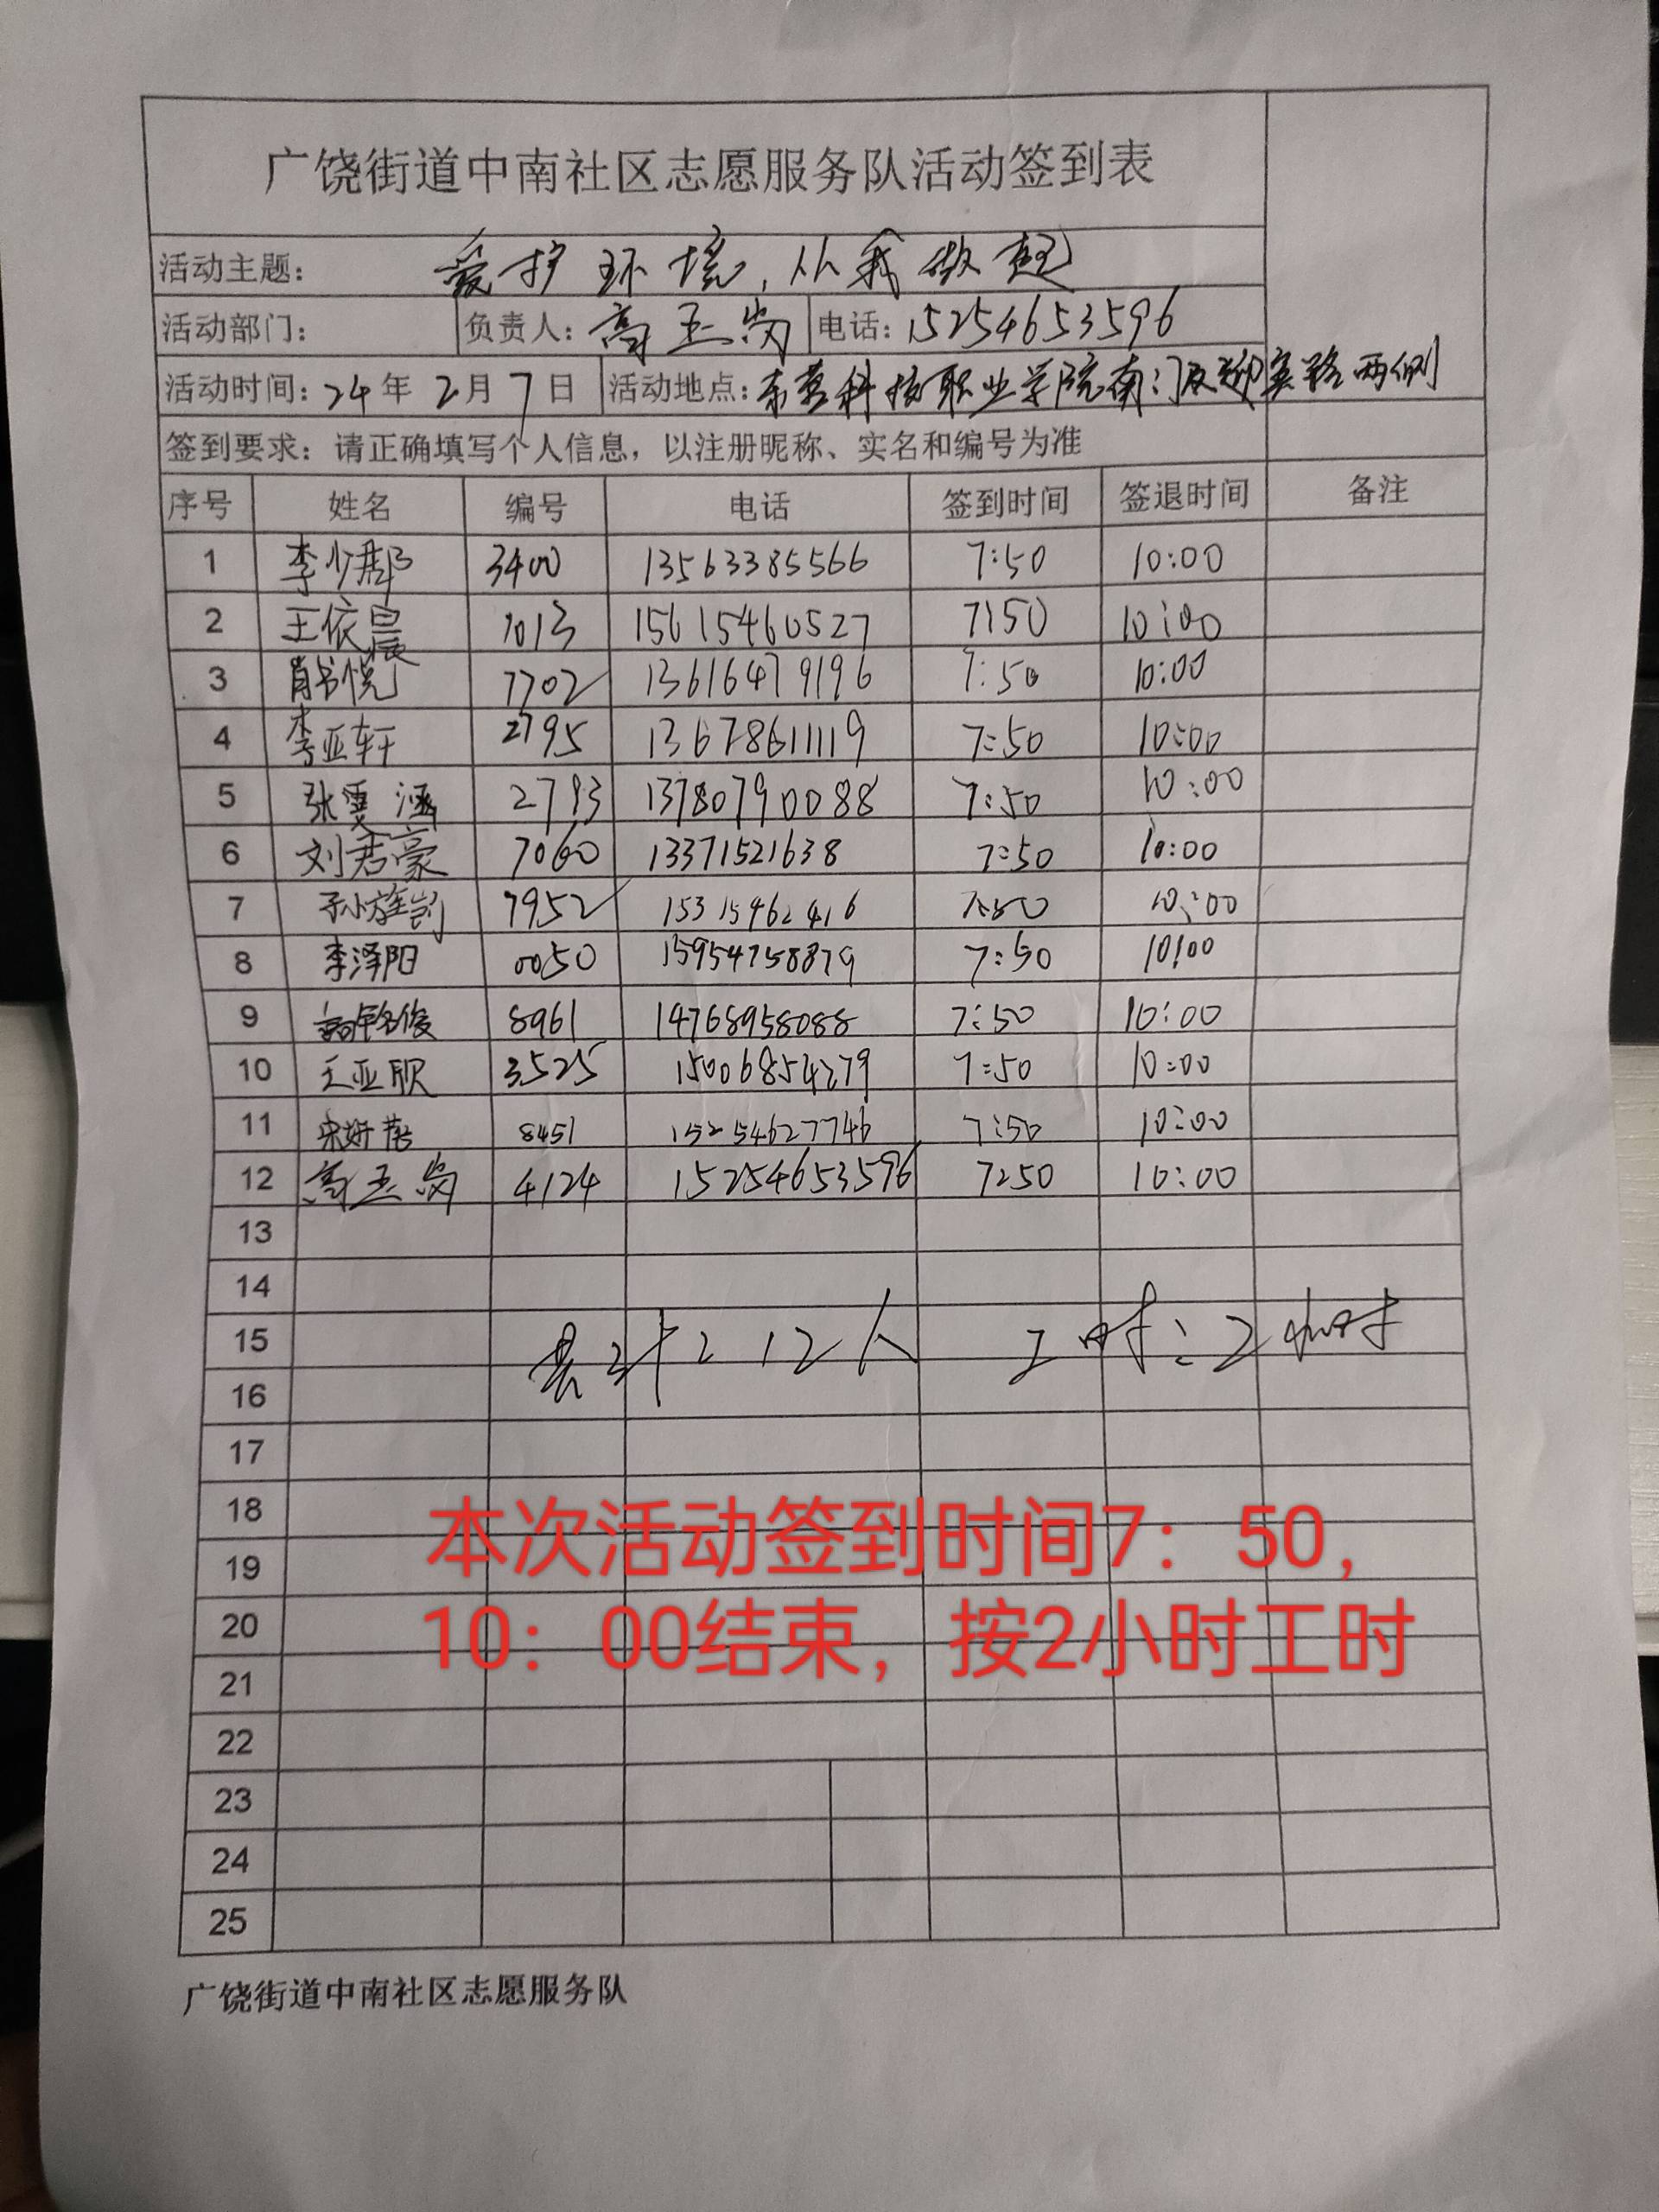 广饶街道中南社区志愿服务队活动签到表
活动主题: 爱护环境,从我做起
活动部门: 负责人: 高玉岗 电话: 15254653596
活动时间: 24年2月7日 活动地点: 东营科技职业学院南门及迎宾路两侧
签到要求: 请正确填写个人信息, 以注册昵称、实名和编号为准
序号 姓名 编号 电话 签到时间 签退时间 备注
1 李少郡 3400 13563385566 7:50 10:00
2 王依晨 7013 15615460527 7:50 10:00
3 肖书悦 7702 13616479196 7:50 10:00
4 李亚轩 2795 13678611119 7:50 10:00
5 张雯涵 2793 13780790088 7:50 10:00
6 刘君豪 7060 13371521638 7:50 10:00
7 7952 15315462416 7:50 10:00
8 李泽阳 0050 15954758879 7:50 10:00
9 8961 14768958088 7:50 10:00
10 王亚欣 3525 15006854279 7:50 10:00
11 8451 15254627746 7:50 10:00
12 高玉岗 4124 15254653596 7:50 10:00
13
14
15 共计:12人 工时:2小时
16
17
18
本次活动签到时间7: 50,
19
20
10: 00结束, 按2小时工时
21
22
23
24
25
广饶街道中南社区志愿服务队